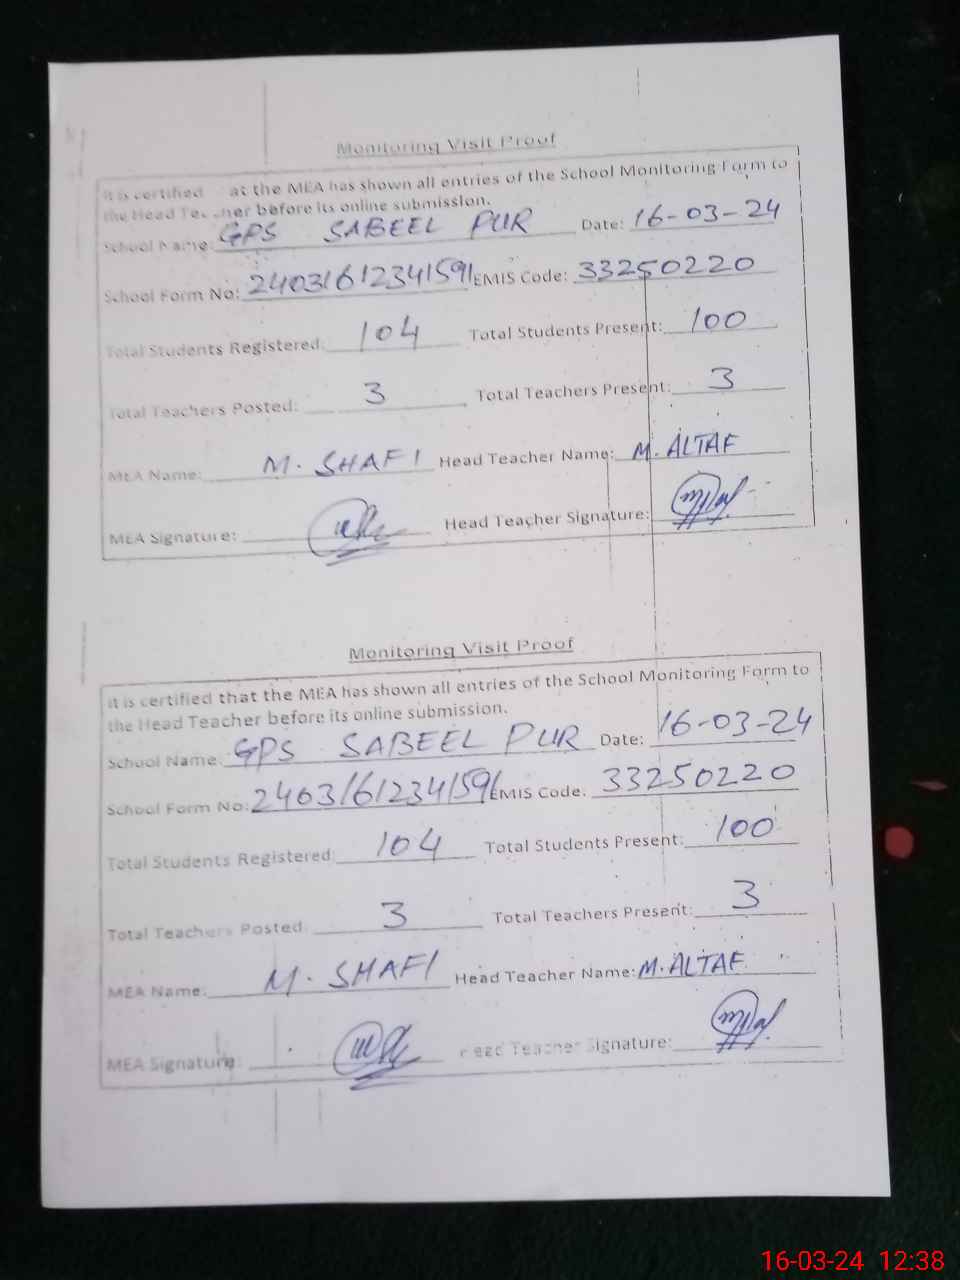 Monitoring Visit Proof
It is certified at the MEA has shown all entries of the School Monitoring Form to
the Head Teacher before its online submission.
School Name: GPS SABEEL PUR Date: 16-03-24
School Form No: 24031612341591 EMIS Code: 33250220
Total Students Registered: 104 Total Students Present: 100
Total Teachers Posted: 3 Total Teachers Present: 3
MEA Name: M. SHAFI Head Teacher Name: M. ALTAF
MEA Signature: Head Teacher Signature:
Monitoring Visit Proof
It is certified that the MEA has shown all entries of the School Monitoring Form to
the Head Teacher before its online submission.
School Name: GPS SABEEL PUR Date: 16-03-24
School Form No: 24031612341591 EMIS Code: 33250220
Total Students Registered: 104 Total Students Present: 100
Total Teachers Posted 3 Total Teachers Present: 3
MEA Name: M. SHAFI Head Teacher Name: M. ALTAF
MEA Signature: Head Teacher Signature:
16-03-24 12:38